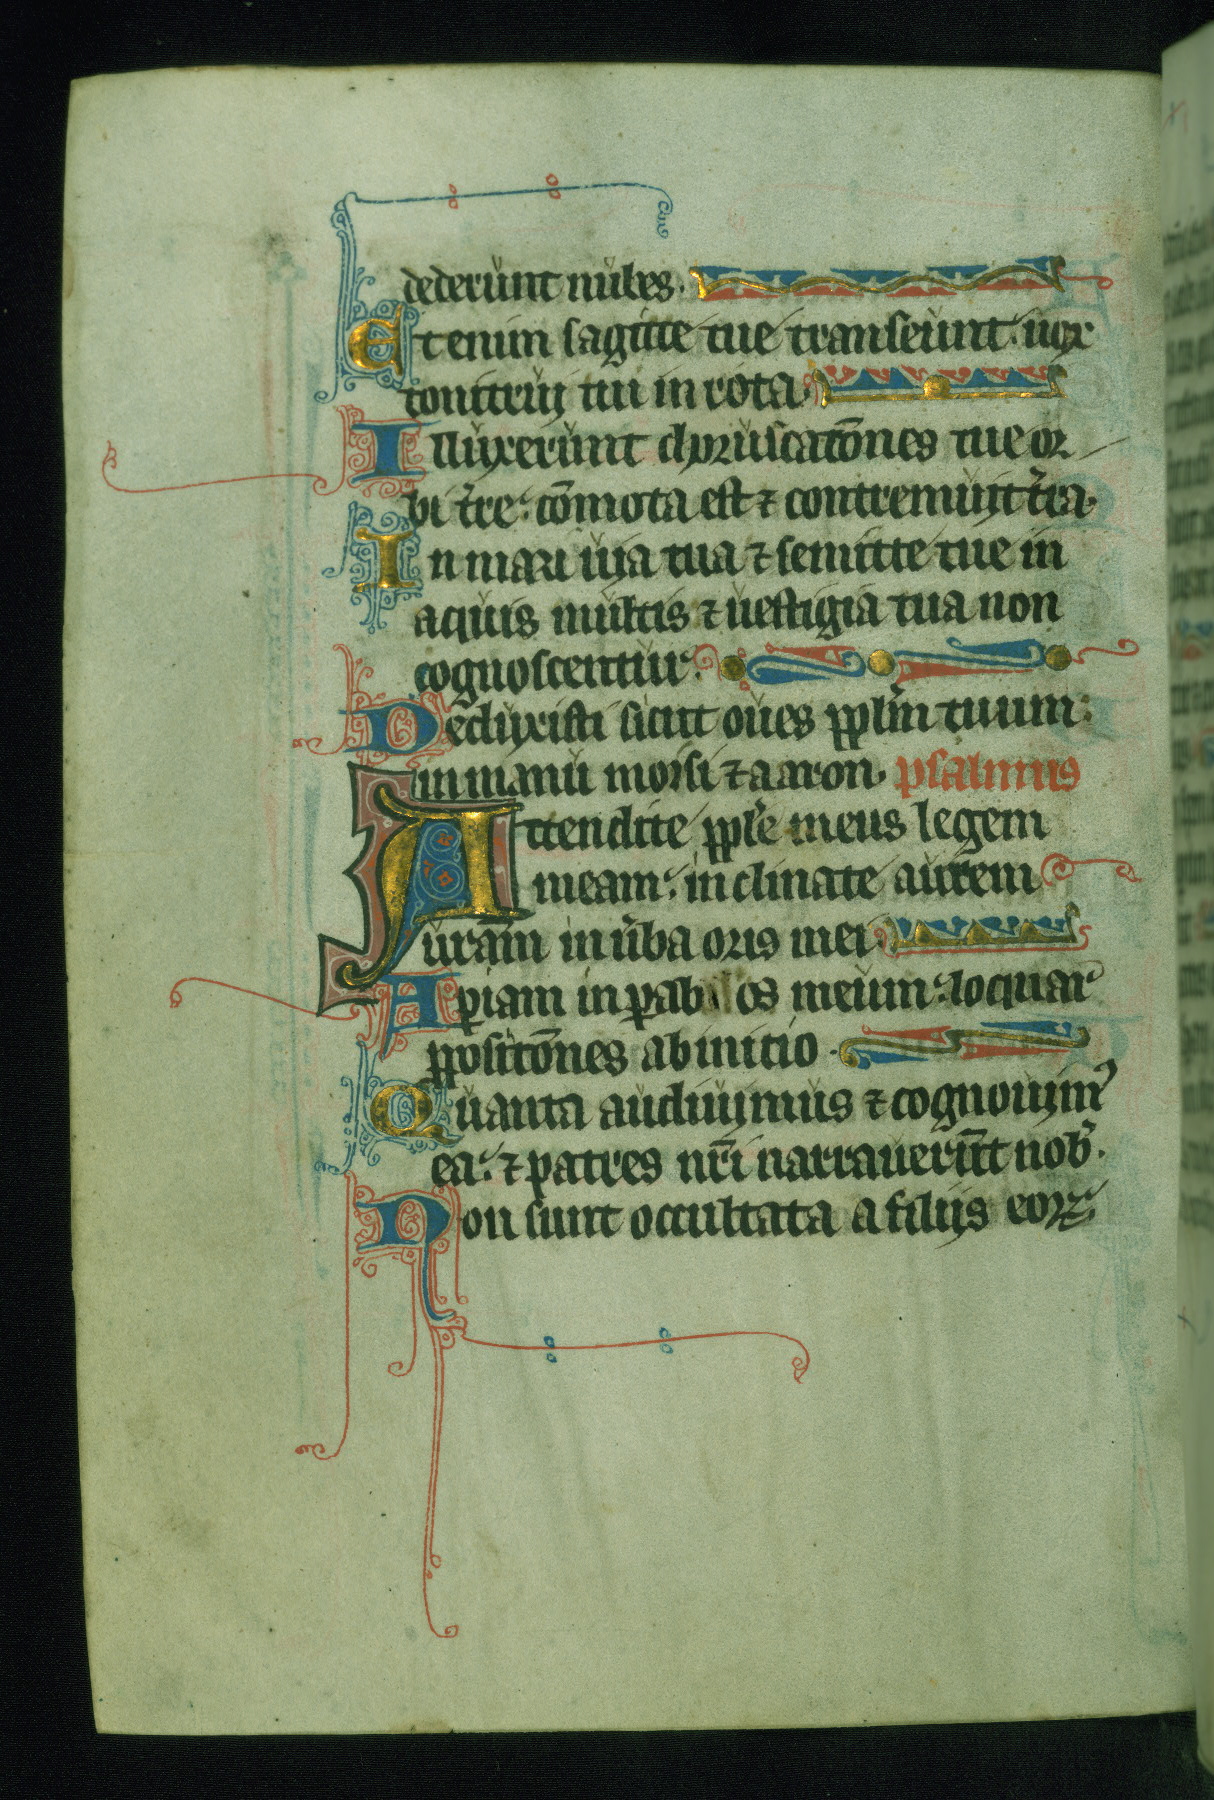 dederunt nubes.
Etenim sagitte tue transeunt: uox
tonitruj tui in rota.
Illuxerunt choruscatōnes tue or
bi tr̄e: cōmota est ⁊ contremuit tr̄a.
In mari uia tua ⁊ semitte tue in
aquis multis ⁊ uestigia tua non
cognoscentur.
Deduxisti sicut oues pplm̄ tuum:
in manu moisi ⁊ aaron. psalmus
Attendite pple meus legem
meam: inclinate aurem
uram in ūba oris mei.
Apiam in pab os meum: loquar
ppositōnes ab initio.
Quanta audiuimus ⁊ cognouimꝰ
ea: ⁊ patres nr̄i narrauerūt nob̄.
Non sunt occultata a filijs eoꝝ